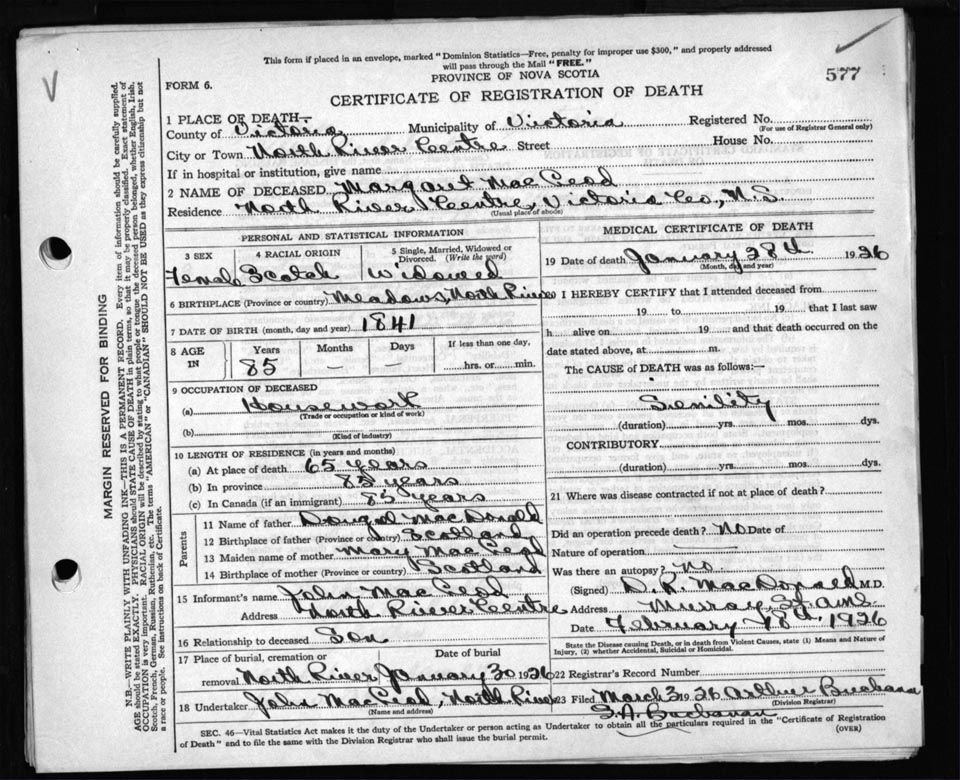 This form if placed in an envelope, marked "Dominion Statistics—Free, penalty for improper use $300," and properly addressed
will pass through the Mail "FREE."
V
577
FORM 6.
PROVINCE OF NOVA SCOTIA
CERTIFICATE OF REGISTRATION OF DEATH
MARGIN RESERVED FOR BINDING
N.B.—WRITE PLAINLY WITH UNFADING INK—THIS IS A PERMANENT RECORD. Every item of information should be carefully supplied.
AGE should be stated EXACTLY. PHYSICIANS should STATE CAUSE OF DEATH in plain terms, so that it may be properly classified. Exact statement of
OCCUPATION is very important. RACIAL ORIGIN will be described by stating to what people or tongue the deceased person belonged, whether English, Irish,
Scotch, French, German, Russian, Ruthenian, etc. The terms "AMERICAN" or "CANADIAN" SHOULD NOT BE USED as they express citizenship but not
a race or people. See instructions on back of Certificate.
1 PLACE OF DEATH—
County of Victoria Municipality of Victoria Registered No.
(For use of Registrar General only)
City or Town North River Centre Street House No.
If in hospital or institution, give name
2 NAME OF DECEASED Margaret MacLeod
Residence North River Centre, Victoria Co, N.S.
(Usual place of abode)
PERSONAL AND STATISTICAL INFORMATION
3 SEX 4 RACIAL ORIGIN 5 Single, Married, Widowed or Divorced. (Write the word)
Female Scotch Widowed
6 BIRTHPLACE (Province or country) Meadows, North River
7 DATE OF BIRTH (month, day and year) 1841
8 AGE IN Years Months Days If less than one day,
85 — — hrs. or min.
9 OCCUPATION OF DECEASED
(a) Housework
(Trade or occupation or kind of work)
(b)
(Kind of industry)
10 LENGTH OF RESIDENCE (in years and months)
(a) At place of death 65 years
(b) In province 85 years
(c) In Canada (if an immigrant) 85 years
Parents
11 Name of father Dougal MacDonald
12 Birthplace of father (Province or country) Scotland
13 Maiden name of mother Mary MacLeod
14 Birthplace of mother (Province or country) Scotland
15 Informant's name John MacLeod
Address North River Centre
16 Relationship to deceased Son
17 Place of burial, cremation or removal Date of burial
North River January 30 1926
18 Undertaker John MacLeod, North River
(Name and address)
MEDICAL CERTIFICATE OF DEATH
19 Date of death January 28th 1926
(Month, day and year)
I HEREBY CERTIFY that I attended deceased from
19 to 19 that I last saw
h alive on 19 and that death occurred on the
date stated above, at m.
The CAUSE of DEATH was as follows:—
Senility
(duration) yrs. mos. dys.
CONTRIBUTORY
(duration) yrs. mos. dys.
21 Where was disease contracted if not at place of death?
Did an operation precede death? No Date of
Nature of operation
Was there an autopsy? No
(Signed) D. R. MacDonald M.D.
Address Murray, St. Anns
Date February 18th, 1926
State the Disease causing Death, or in death from Violent Causes, state (1) Means and Nature of
Injury, (2) whether Accidental, Suicidal or Homicidal.
22 Registrar's Record Number
23 Filed March 3 1926 Arthur Buchanan
(Division Registrar)
Buchanan
SEC. 46—Vital Statistics Act makes it the duty of the Undertaker or person acting as Undertaker to obtain all the particulars required in the "Certificate of Registration
of Death" and to file the same with the Division Registrar who shall issue the burial permit.
(OVER)